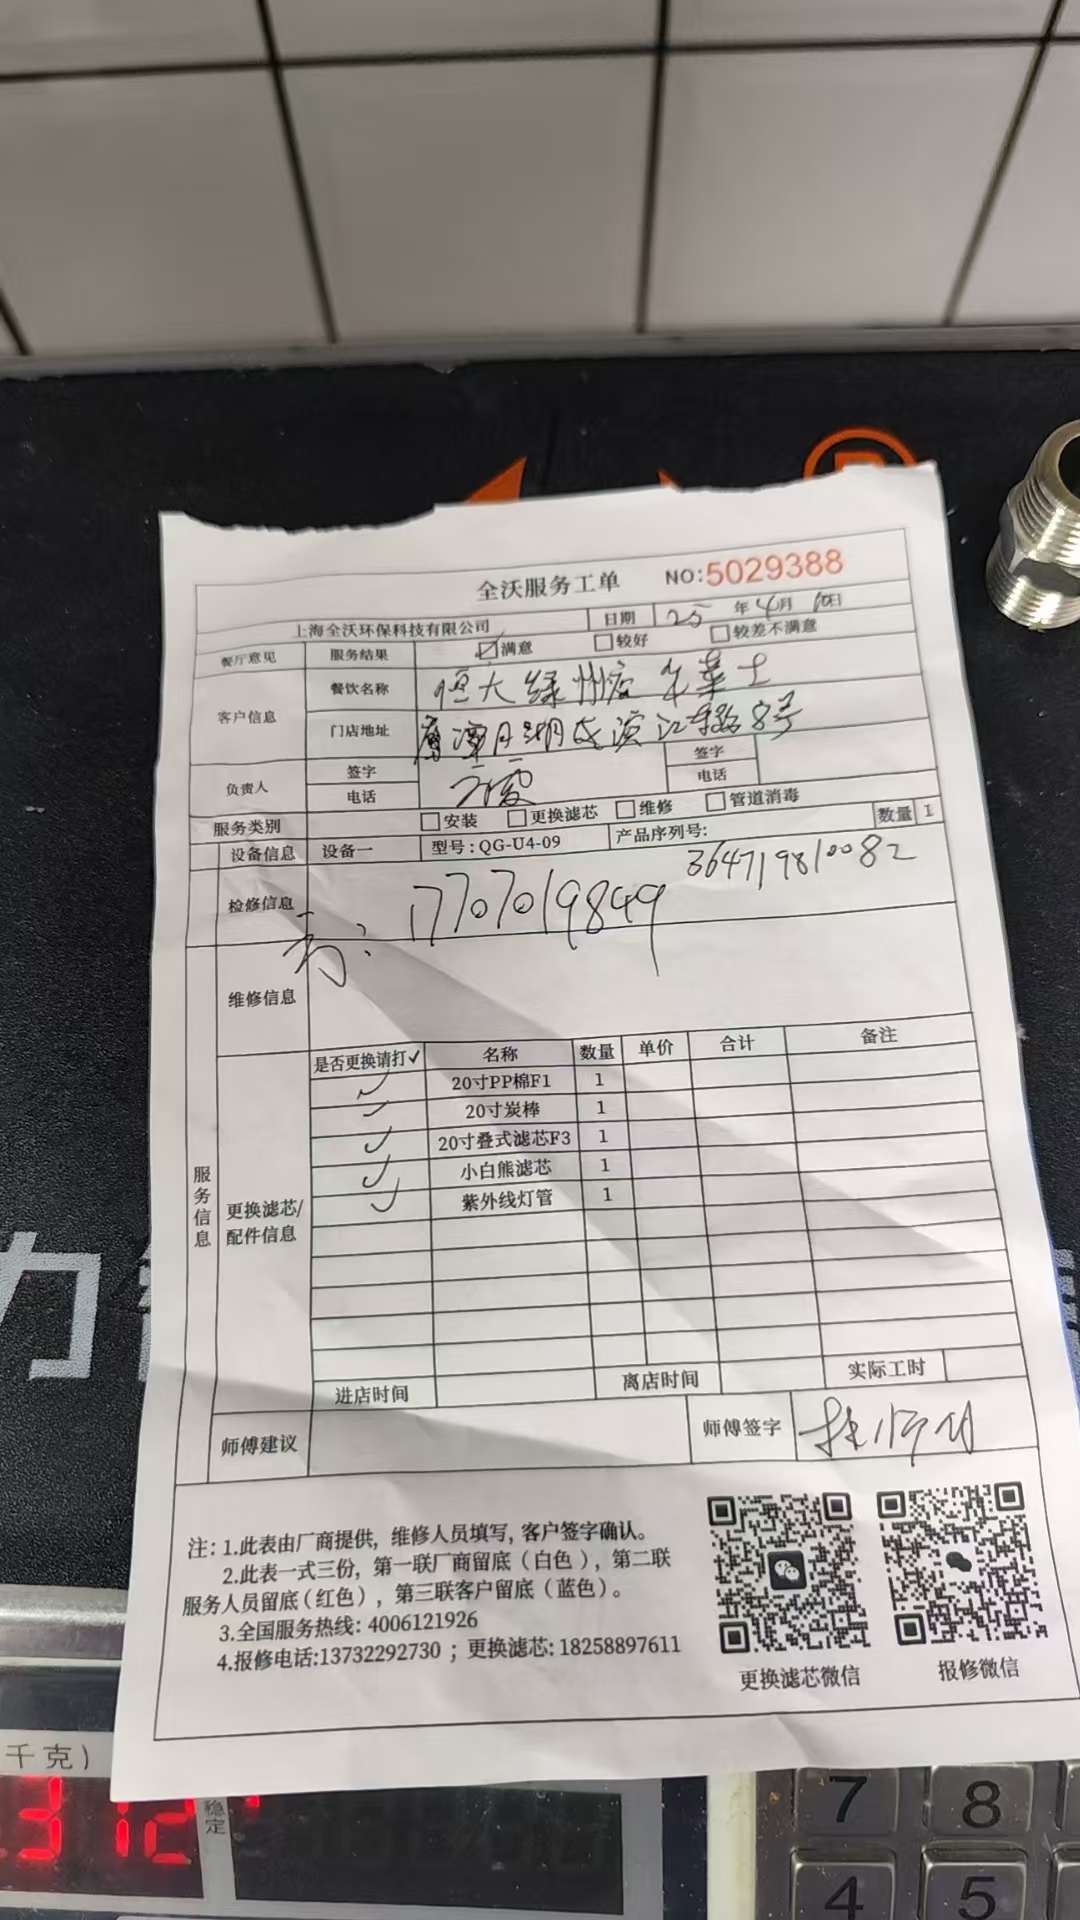 全沃服务工单 NO:5029388
上海全沃环保科技有限公司 日期 25 年 4月 10日
餐厅意见 服务结果 ☑满意 □较好 □较差不满意
客户信息 餐饮名称 恒大绿州店
门店地址 鹰潭月湖 滨江东路8号
负责人 签字 签字
电话 电话
服务类别 □安装 □更换滤芯 □维修 □管道消毒
设备信息 设备一 型号:QG-U4-09 产品序列号: 数量 1
364719810082
检修信息 17707019849
维修信息
服务信息
更换滤芯/配件信息
是否更换请打✓ 名称 数量 单价 合计 备注
✓ 20寸PP棉F1 1
✓ 20寸炭棒 1
✓ 20寸叠式滤芯F3 1
✓ 小白熊滤芯 1
✓ 紫外线灯管 1
进店时间 离店时间 实际工时
师傅建议 师傅签字
注: 1.此表由厂商提供, 维修人员填写, 客户签字确认。
2.此表一式三份, 第一联厂商留底(白色), 第二联
服务人员留底(红色), 第三联客户留底(蓝色)。
3.全国服务热线: 4006121926
4.报修电话:13732292730 ; 更换滤芯: 18258897611
更换滤芯微信 报修微信
千克)
稳定
7 8
4 5